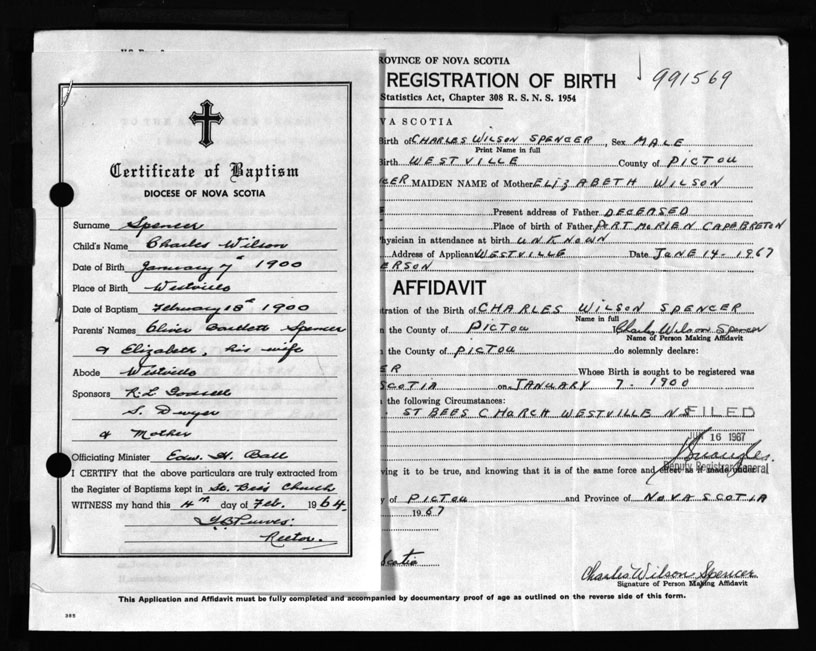 Certificate of Baptism
DIOCESE OF NOVA SCOTIA
Surname Spencer
Child's Name Charles Wilson
Date of Birth January 7th 1900
Place of Birth Westville
Date of Baptism February 18th 1900
Parents' Names Oliver Bartlett Spencer
& Elizabeth, his wife
Abode Westville
Sponsors R. L.
S. Dwyer
& Mother
Officiating Minister Edw. H. Ball
I CERTIFY that the above particulars are truly extracted from
the Register of Baptisms kept in St. Bees Church
WITNESS my hand this 4th day of Feb. 1964
Rector.
ROVINCE OF NOVA SCOTIA
REGISTRATION OF BIRTH
991569
Statistics Act, Chapter 308 R. S. N. S. 1954
VA SCOTIA
Birth of CHARLES WILSON SPENCER, Sex MALE
Print Name in full
Birth WESTVILLE County of PICTOU
CER MAIDEN NAME of Mother ELIZABETH WILSON
Present address of Father DECEASED
Place of birth of Father PORT MORIEN CAPE BRETON
hysician in attendance at birth UNKNOWN
Address of Applicant WESTVILLE Date JUNE 14 - 1967
ERSON
AFFIDAVIT
tration of the Birth of CHARLES WILSON SPENCER
Name in full
n the County of PICTOU I Charles Wilson Spencer
Name of Person Making Affidavit
n the County of PICTOU do solemnly declare:
ER Whose Birth is sought to be registered was
SCOTIA on JANUARY 7. 1900
the following Circumstances:
ST BEES CHURCH WESTVILLE NS
FILED
16 1967
Deputy Registrar General
ving it to be true, and knowing that it is of the same force and effect as if made under
y of PICTOU and Province of NOVA SCOTIA
1967
Scotia
Charles Wilson Spencer
Signature of Person Making Affidavit
This Application and Affidavit must be fully completed and accompanied by documentary proof of age as outlined on the reverse side of this form.
385